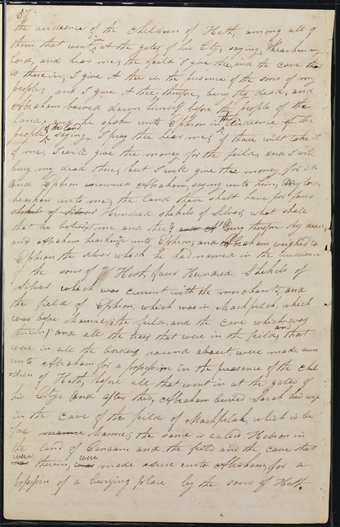 57
the audience of the children of Heth, among all of
them that went in at the gates of his City, saying, Hearken my
lord, and hear me; the feild I give thee, and the cave that
is therein; I give it thee in the presence of the sons of my
people; and I give it thee; therefore, bury thy dead, and
Abraham bowed down himself before the people of the
Land, and he spoke unto Ephron in the audience of the
people of the land saying, I pray thee hear me; if thou wilt take it
of me, I will give thee money for the feild, and I will
bury my dead there; but I will give thee money for it
and Ephron answered Abraham, saying unto him, My lord,
hearken unto me; the land thou shalt have for four
hundred shekels of Silver; what shall
that be betwixt me and thee? bury therefore thy dead;
and Abraham hearkened unto Ephron; and Abraham weighed to
Ephron the silver which he had named in the audience
of the sons of Heth, four Hundred Shekels of
Silver which was current with the merchant; and
the field of Ephron, which was in Machpelah, which
was before Mamre; the feild, and the cave which was
therein; and all the trees that were in the feild, and that
were in all the borders round about, were made sure
unto Abraham for a possession in the presence of the chil
-dren of Heth, before all that went in at the gates of
his City; and after this, Abraham buried Sarah his wife
in the cave of the feild of Machpelah, which is be
fore Mamre; the same is called Hebron in
the land of Canaan and the feild and the cave that
were therein, were made sure unto Abraham, for a
possession of a burying place by the sons of Heth.